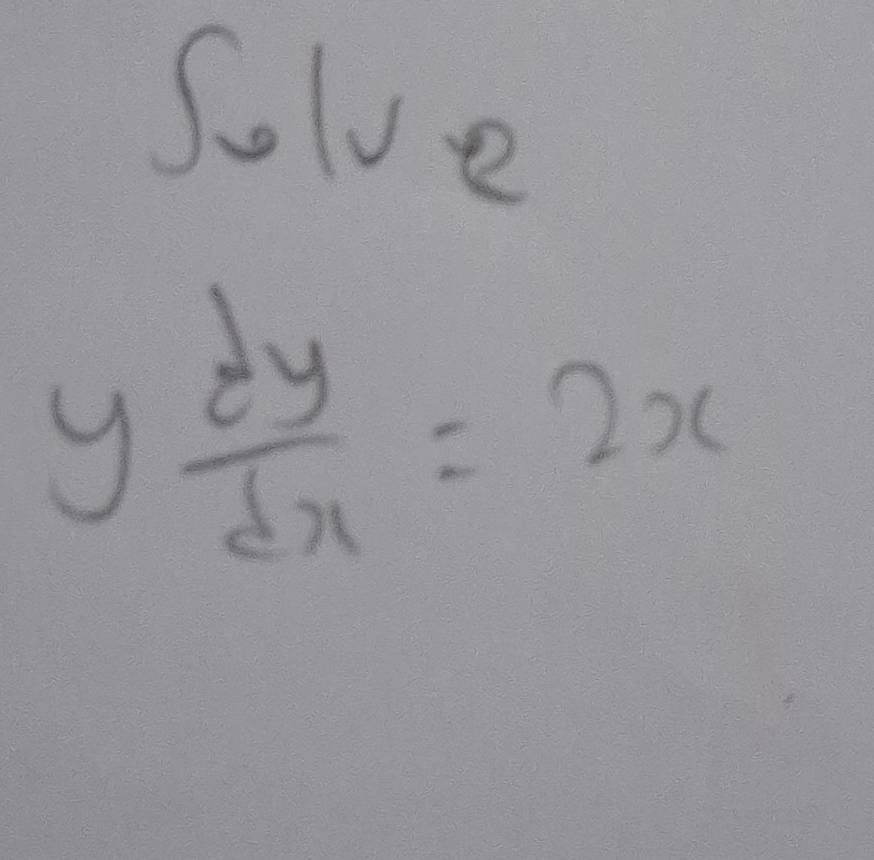 Solve
y dy/dx = 2x